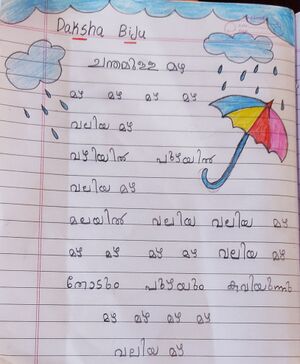 Daksha Biju
ചന്തമിള്ള മഴ
മഴ മഴ മഴ മഴ
വലിയ മഴ
വഴിയിൽ പുഴയിൽ
വലിയ മഴ
മലയിൽ വലിയ വലിയ മഴ
മഴ മഴ മഴ മഴ വലിയ മഴ
തോടും പുഴയും കവിയുന്ന
മഴ മഴ മഴ മഴ
വലിയ മഴ